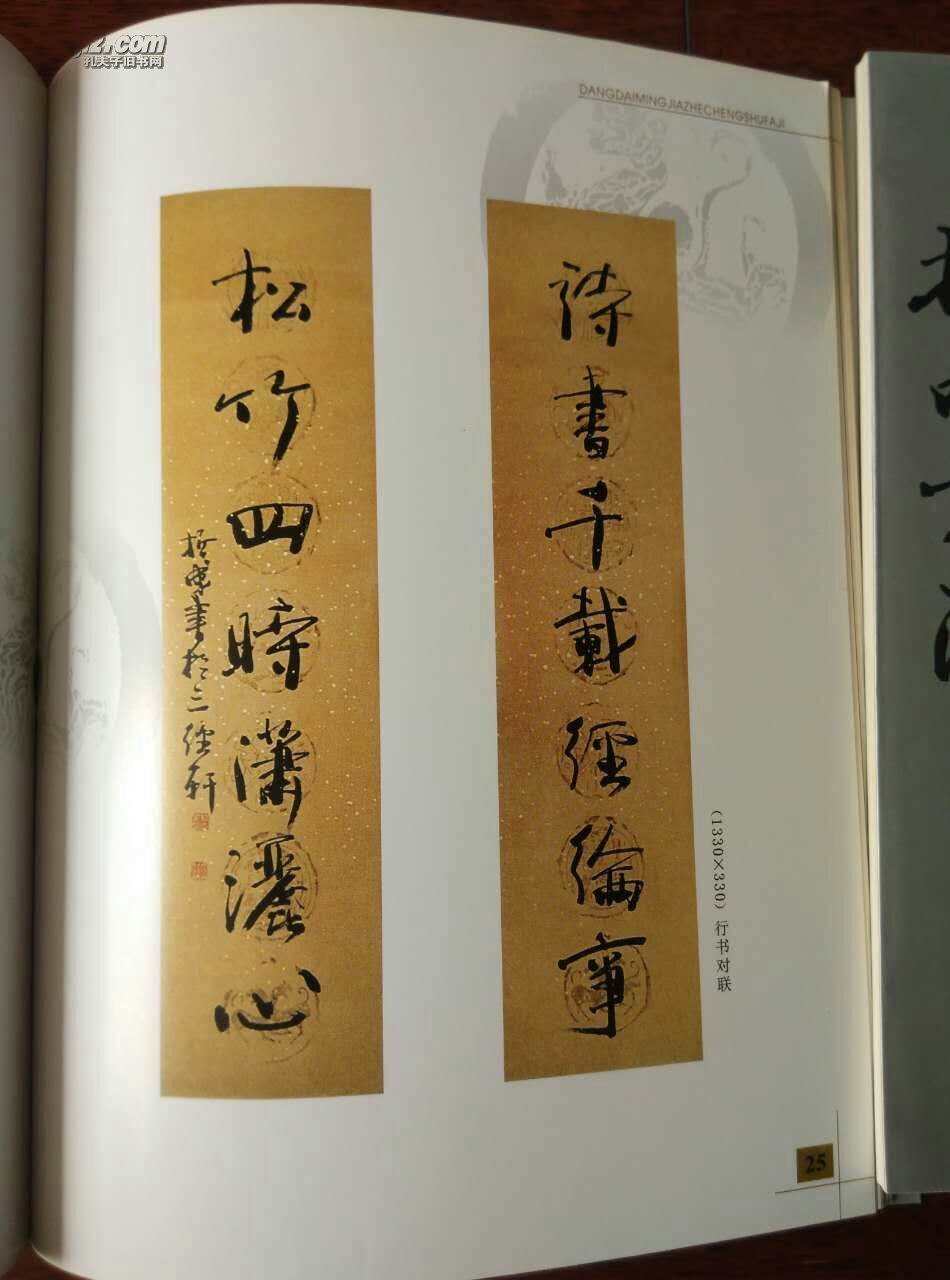 孔夫子旧书网
DANGDAIMINGJIAZHECHENGSHUFAJI
詩書千載經綸事
松竹四時瀟灑心
哲成書於三經軒
(1330×330)行书对联
25